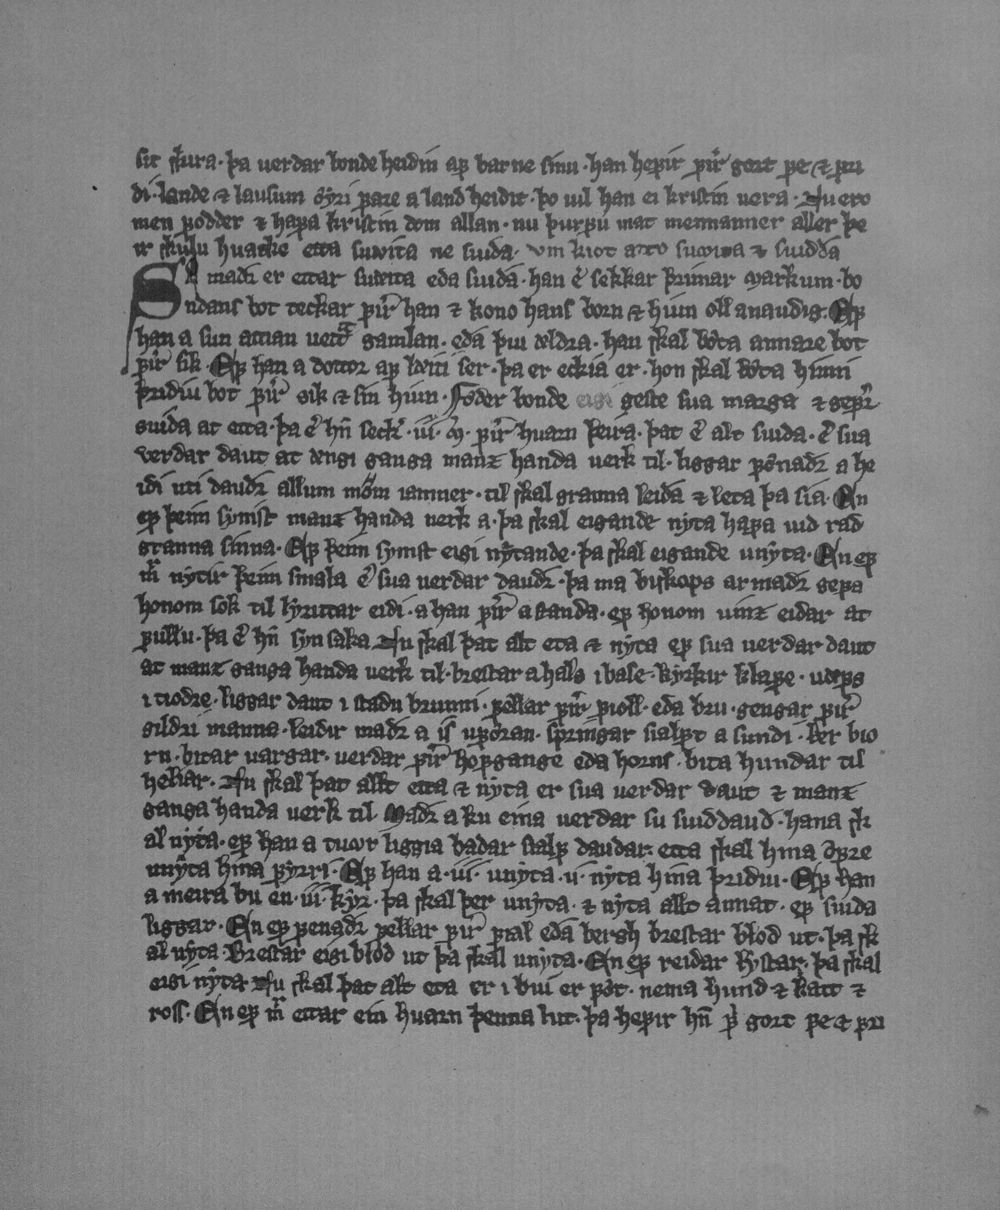 sir skira · þa uerdar bonde heidin aꝼ barne sinu · han heꝼir ꝼir gort ꝼe ⁊ ꝼri
di · lande ⁊ lausum øyri ꝼare a land heidit · þo uil han ei kristin uera · Nu ero
men ꝼodder ⁊ haꝼa kristin dom allan · nu þurꝼu mat mennanner aller þe
ir skulu huarke etta suuita ne suida · vm kiot
Sa madr er ettar suuita eda suida · han er sekkar þrimar markum · bo
ndans bot teckar ꝼir han ⁊ kono hans born ⁊ hiun oll anaudig · Eꝼ
han a sun attian uettra gamlan · eda þiu eldra · han skal bøta annare bot
ꝼir sik · Eꝼ han a dottor aꝼ lditi ser · þa er eckia er · hon skal bøta hinni
þridiu bot ꝼir sik ⁊ sin hiun · Føder bonde eigi geste sua marga ⁊ geꝼr
suida at etta · þa er hn̄ seckr · iii · m · ꝼir huarn þeira · þat er alt suida · er sua
verdar daut at engi ganga manz handa uerk til · liggar ꝼenadr a he
idi uti daudr allum mǫnnom iamner · til skal granna leida ⁊ leta þa sia · En
eꝼ þeim synist manz handa uerk a · þa skal eigande nyta haꝼa uid rad
granna sinna · Eꝼ þeim synist eigi nytande · þa skal eigande unyta · En eꝼ
mr nytir þeim smala er sua uerdar daudr · þa ma biskops armadr geꝼa
honom sok til lyrittar eidi · a han ꝼir astanda · eꝼ honom uinz eidar at
ꝼullu · þa er hn̄ syn saka Nu skal þat alt eta ⁊ nyta eꝼ sua uerdar daut
at manz ganga handa uerk til · brestar a hals i base · kyrkir klaꝼe · uerꝼs
i tiodre · liggar daut i stadu brunni · ꝼellar ꝼir ꝼioll · eda bru · gengar ꝼir
gildri manna · leidir madr a is uꝼøran · springar sialꝼt a sundi · ber bio
rn · bitar uargar · uerdar ꝼir hoꝼgange eda horns · bita hundar til
heliar · Nu skal þat allt etta ⁊ nyta er sua uerdar daut ⁊ manz
ganga handa uerk til · Madr a ku eina uerdar su suiddaud · hana sk
al nyta · eꝼ han a tuor liggia badar sialꝼ daudar · etta skal hina øꝼre
unyta hina ꝼyrri · Eꝼ han a · iii · unyta · ii · nyta hina þridiu · Eꝼ han
a meira bu en · iii · kyr · þa skal þer unyta · ⁊ nyta allt annat · eꝼ suida
liggar · En eꝼ ꝼenadr ꝼellar ꝼir ꝼial eda bergh brestar blod ut · þa sk
al nyta Brestar eigi blod ut þa skal unyta · En eꝼ reidar hystar · þa skal
eigi nyta Nu skal þat alt eta er i bui er ꝼøt · nema hund ⁊ katt ⁊
ross · En eꝼ mr ettar ein huarn þenna lut · þa heꝼir hn̄ ꝼr gort ꝼe ⁊ ꝼri